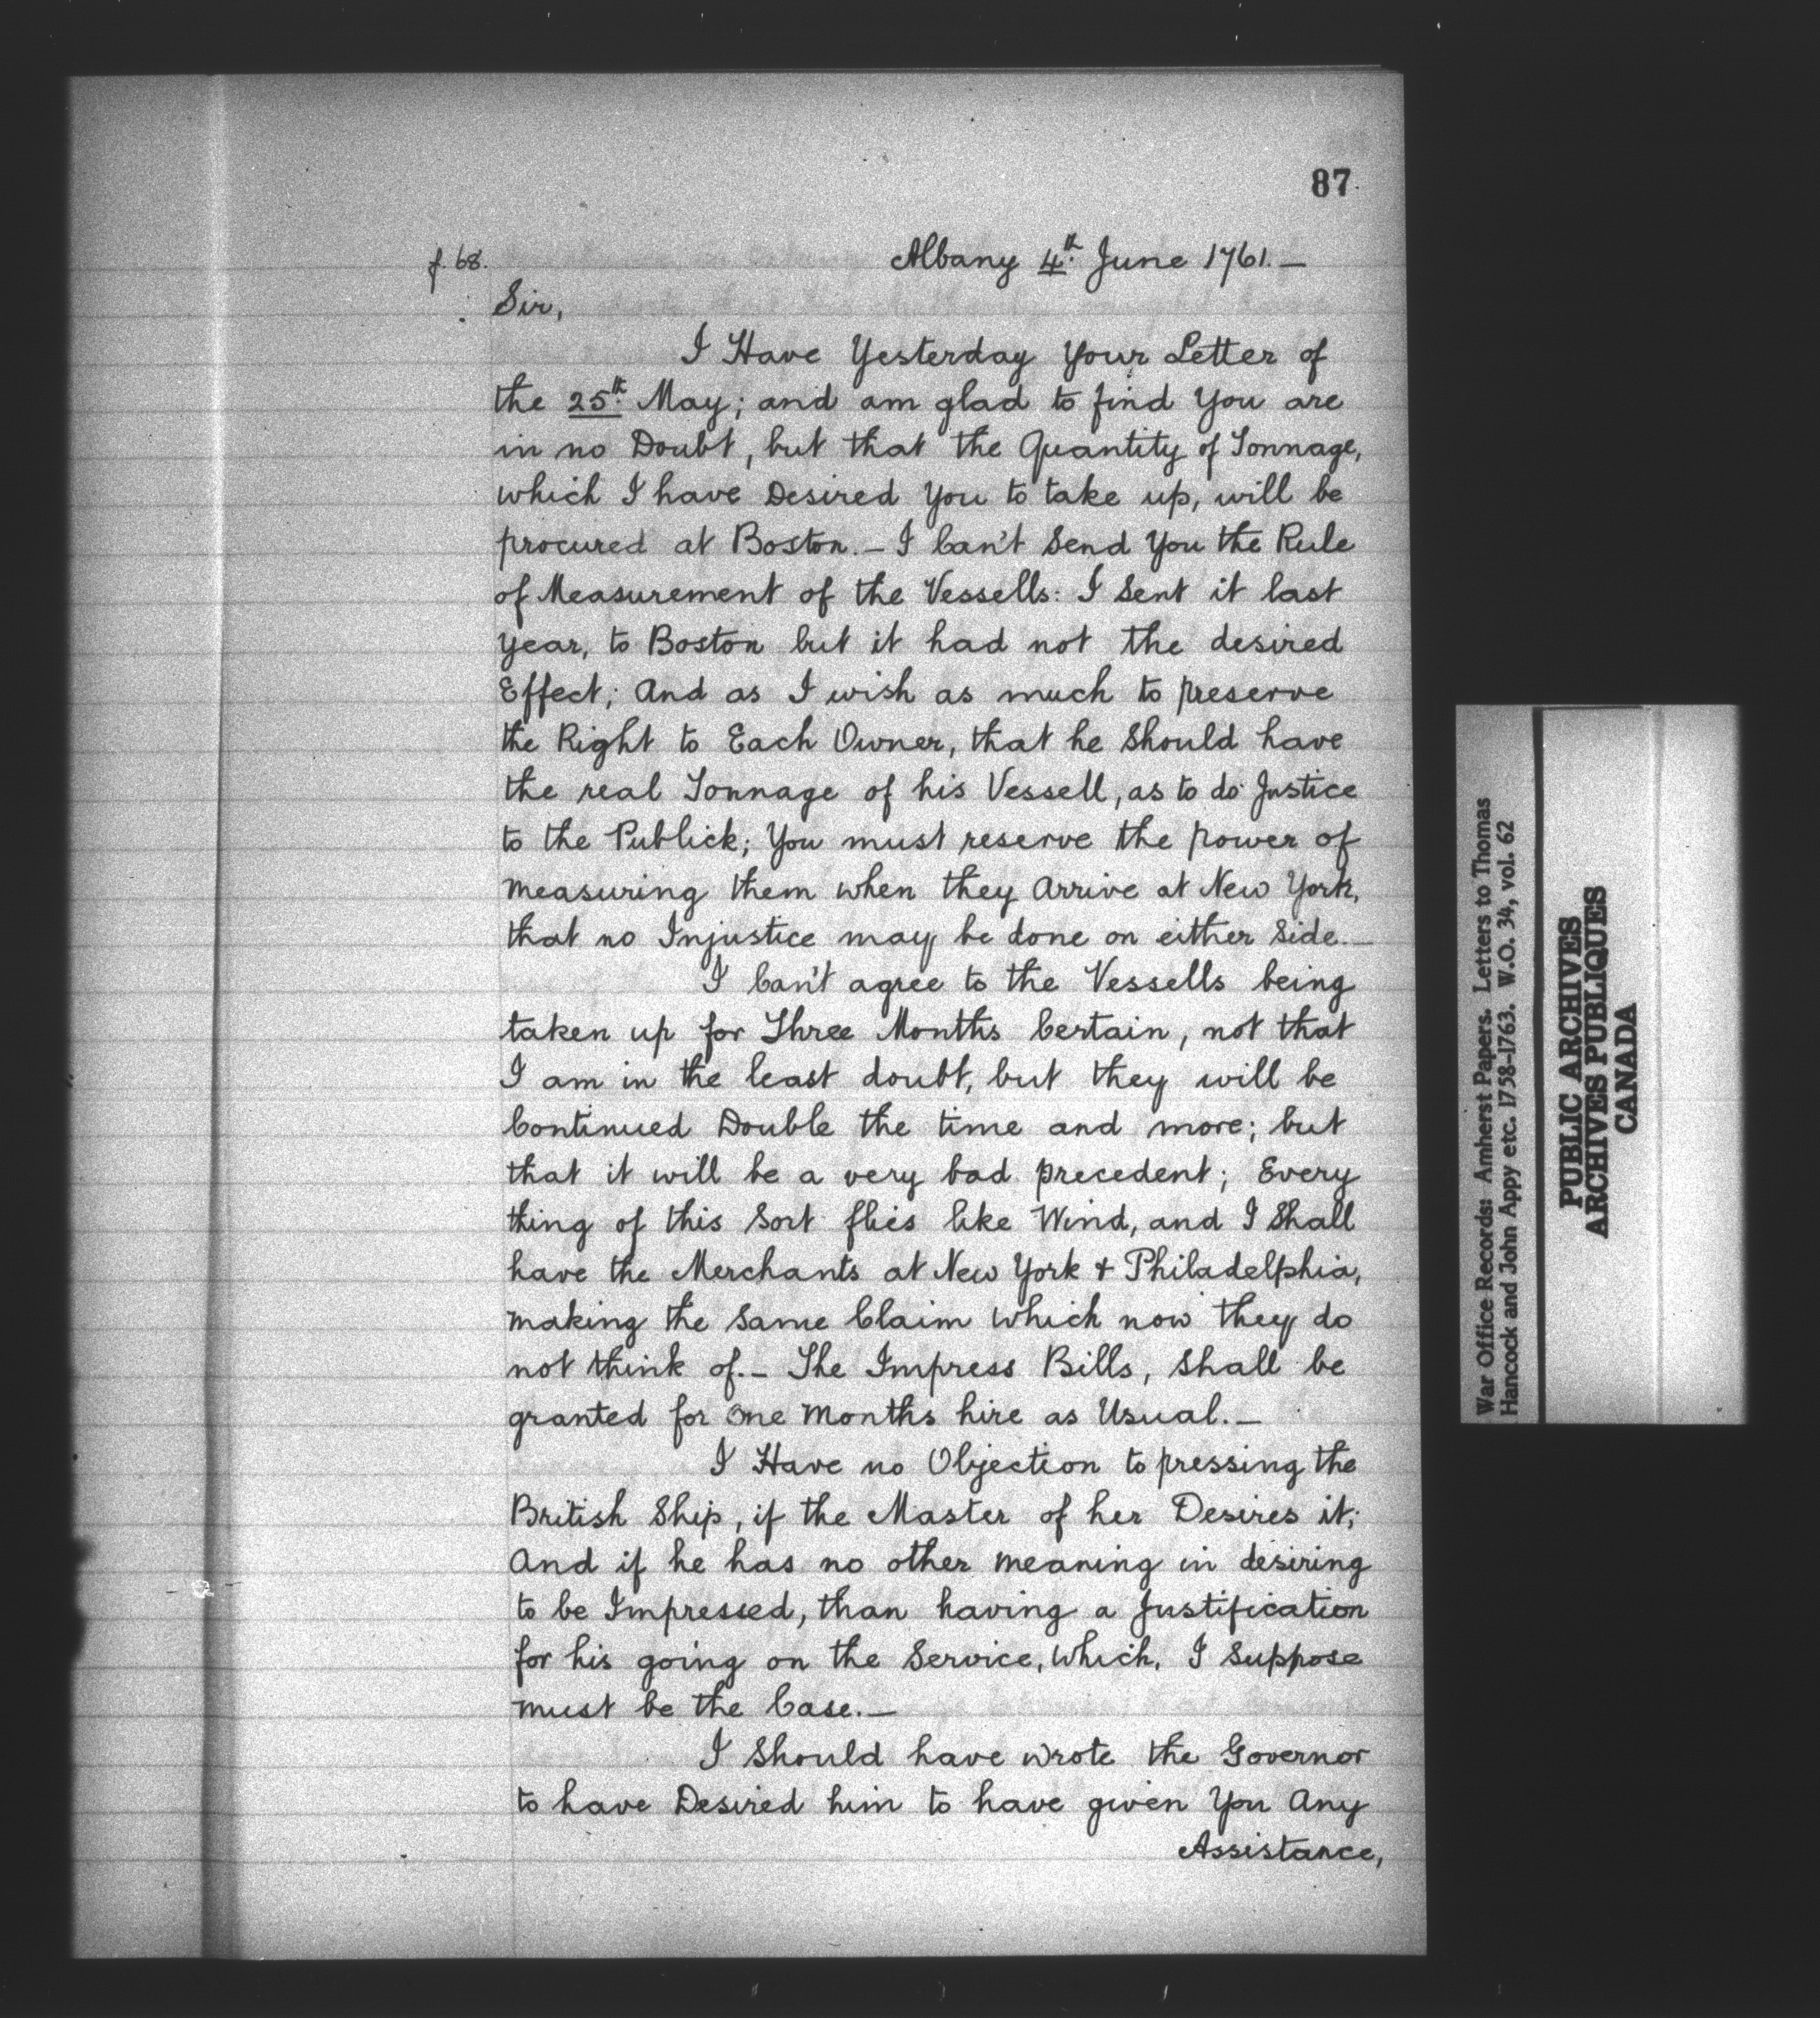 87
f. 68.
Albany 4th. June 1761.—
Sir,
I Have Yesterday Your Letter of
the 25th. May; and am glad to find You are
in no Doubt, but that the Quantity of Tonnage,
which I have Desired You to take up, will be
procured at Boston.— I Can't Send You the Rule
of Measurement of the Vessells: I Sent it last
year, to Boston but it had not the desired
Effect; And as I wish as much to preserve
the Right to Each Owner, that he Should have
the real Tonnage of his Vessell, as to do Justice
to the Publick; You must reserve the power of
measuring them when they Arrive at New York,
that no Injustice may be done on either Side.—
I Can't agree to the Vessells being
taken up for Three Months Certain, not that
I am in the least doubt, but they will be
Continued Double the time and more; but
that it will be a very bad precedent; Every
thing of this Sort flies like Wind, and I Shall
have the Merchants at New York & Philadelphia,
making the Same Claim which now they do
not think of.— The Impress Bills, Shall be
granted for One Months hire as Usual.—
I Have no Objection to pressing the
British Ship, if the Master of her Desires it;
And if he has no other meaning in desiring
to be Impressed, than having a Justification
for his going on the Service, Which, I Suppose
must be the Case.—
I Should have wrote the Governor
to have Desired him to have given You Any
Assistance,
War Office Records: Amherst Papers. Letters to Thomas
Hancock and John Appy etc. 1758-1763. W.O. 34, vol. 62
PUBLIC ARCHIVES
ARCHIVES PUBLIQUES
CANADA